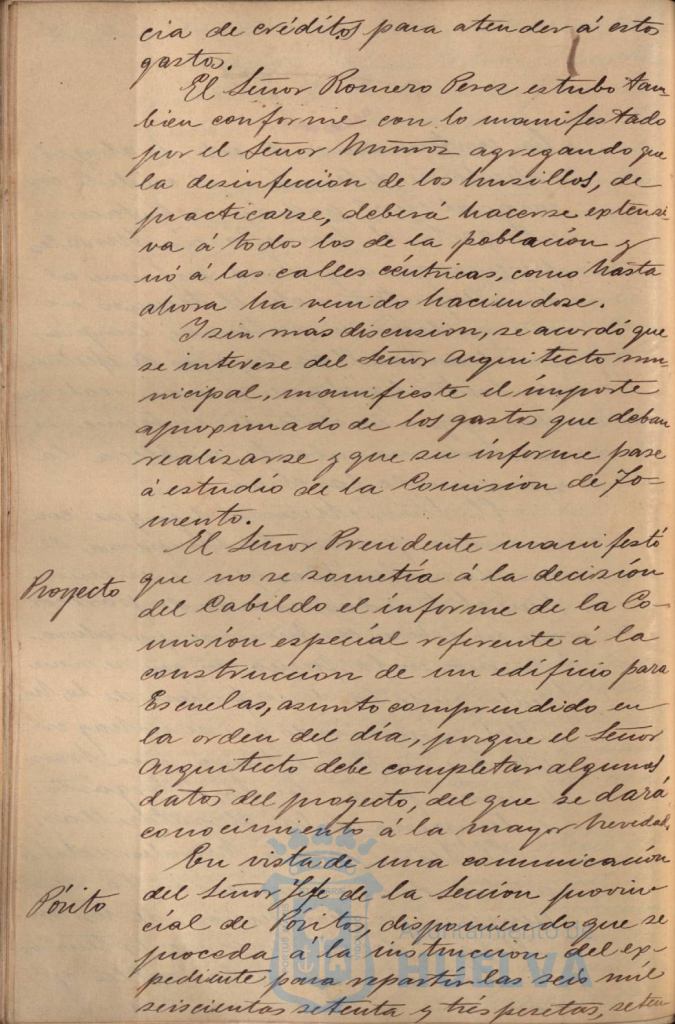 cia de créditos para atender á estos
gastos.
El Señor Romero Perez estubo tam-
bien conforme con lo manifestado
por el Señor Muñoz agregando que
la desinfección de los husillos, de
practicarse, deberá hacerse extensi-
va á todos los de la población y
nó á las calles céntricas, como hasta
ahora ha venido haciendose.
Y sin más discusion, se acordó que
se interese del Señor Arquitecto mu-
nicipal, manifieste el importe
aproximado de los gastos que deban
realizarse y que su informe pase
á estudio de la Comision de Fo-
mento.
El Señor Presidente manifestó
Proyecto
que no se sometía á la decisión
del Cabildo el informe de la Co-
misión especial referente á la
construccion de un edificio para
Escuelas, asunto comprendido en
la orden del día, porque el Señor
Arquitecto debe completar algunos
datos del proyecto, del que se dará
conocimiento á la mayor brevedad.
En vista de una comunicación
Pósito
del Señor Jefe de la Sección provin-
cial de Pósitos, disponiendo que se
proceda á la instruccion del ex-
pediente para repartir las seis mil
seiscientas setenta y trés pesetas, seten
Ayuntamiento de
HUELVA